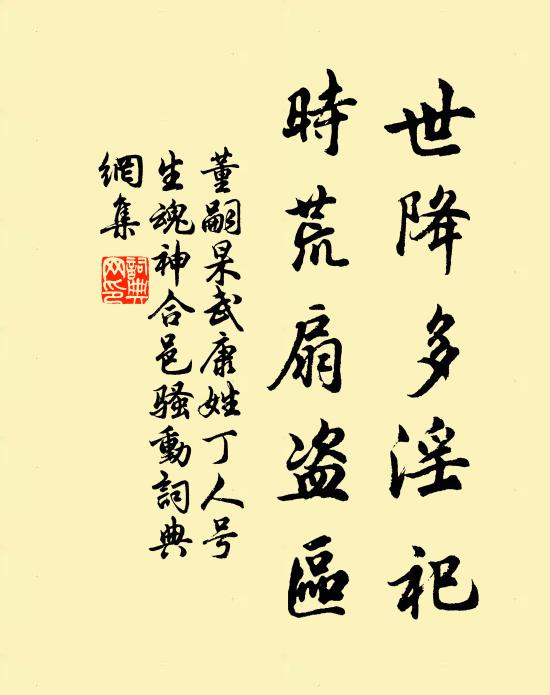 世降多淫祀
時荒扇盗區
董嗣杲武康姓丁人号
生魂神合邑騷動詞典
網集
詞典網印